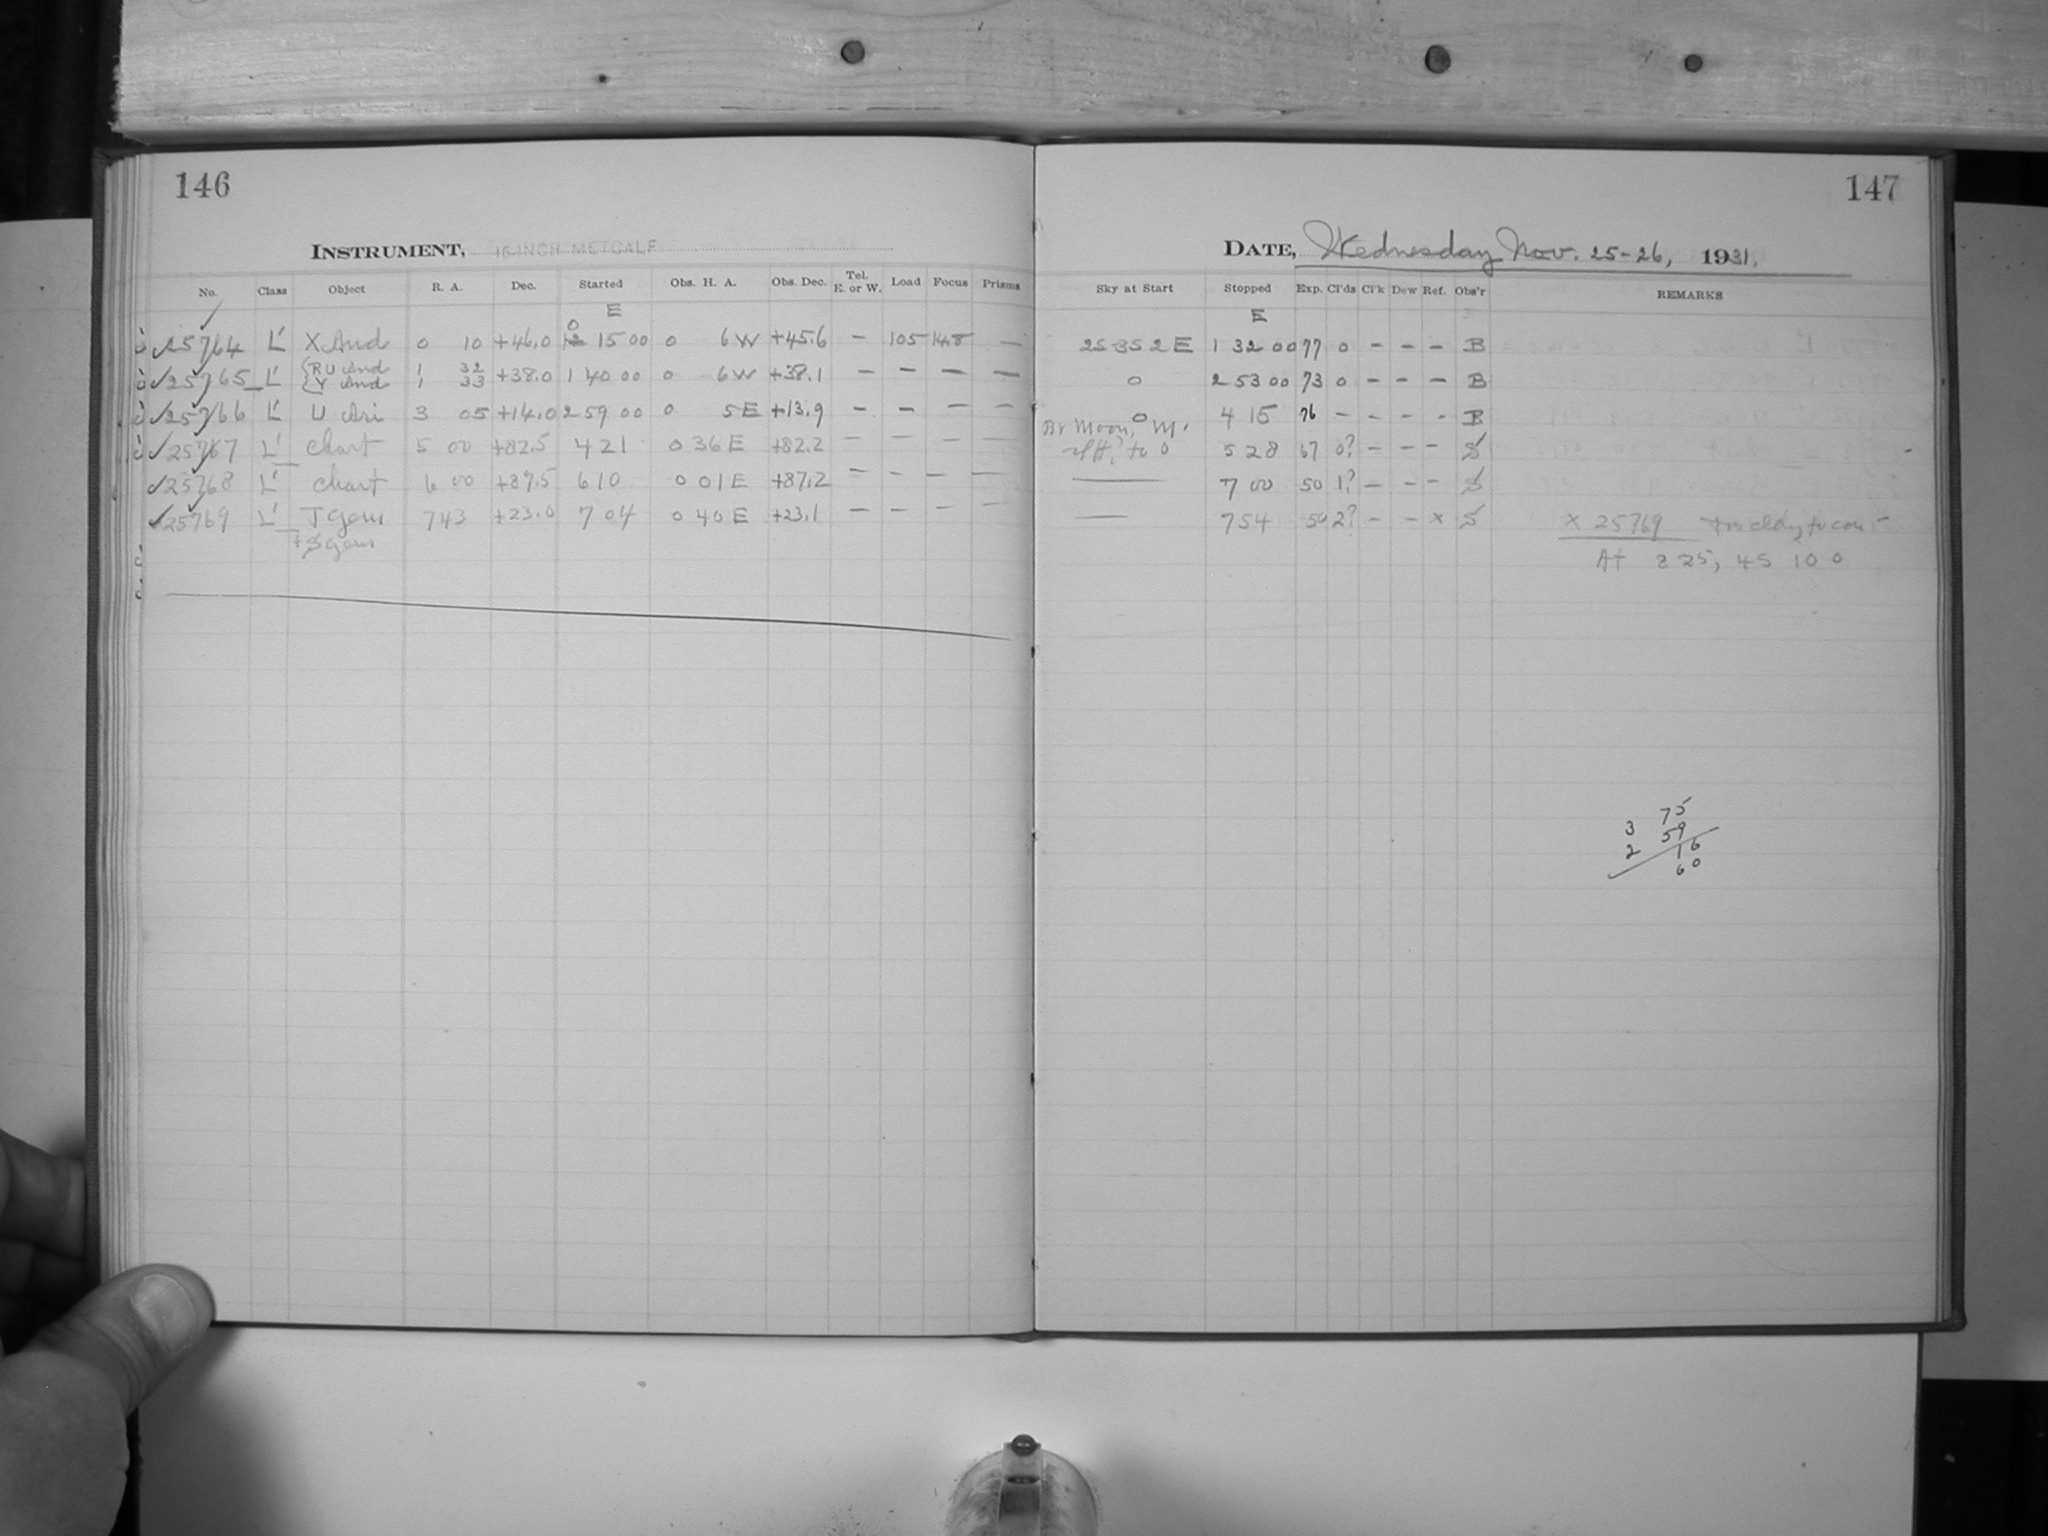 146
INSTRUMENT, 16-INCH METCALF
No. Class Object R. A. Dec. Started Obs. H. A. Obs. Dec. Tel. E. or W. Load Focus Prisms
E
25764 L' X And 0 10 +46.0 0 15 00 0 6 W +45.6 – 105 14.8 —
25765 L' { RU And 1 32 +38.0 1 40 00 0 6 W +38.1 – – – –
Y And 1 33
25766 L' U Ari 3 05 +14.0 2 59 00 0 5 E +13.9 – – – –
25767 L' Chart 5 00 +82.5 4 21 0 36 E +82.2 – – – –
25768 L' Chart 6 00 +87.5 6 10 0 01 E +87.2 – – – –
25769 L' T Gem 7 43 +23.0 7 04 0 40 E +23.1 – – – –
+ S Gem
147
DATE, Wednesday Nov. 25-26, 1931.
Sky at Start Stopped Exp. Cl'ds Cl'k Dew Ref. Obs'r REMARKS
E
25 35 2 E 1 32 00 77 0 – – – B
0 2 53 00 73 0 – – – B
0 4 15 76 – – – B
Br Moon,
to 0 5 28 67 0? – – – S
— 7 00 50 1? – – – S
— 7 54 50 2? – – x S x 25769 too cldy to con-
At 8 25, 45 10 0
75
3 59
2 16
60